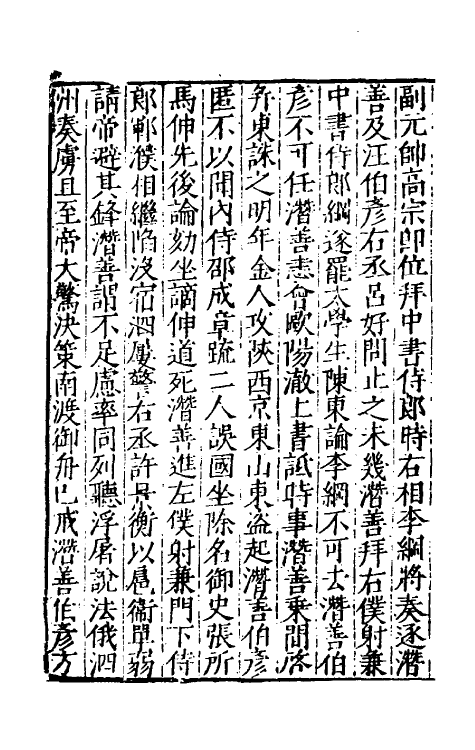 副元帥高宗即位拜中書侍郎時右相李綱將奏逐潛
善及汪伯彥右丞呂好問止之未幾潛善拜右僕射兼
中書侍郎綱遂罷太學生陳東論李綱不可去潛善伯
彥不可任潛善恚會歐陽澈上書詆時事潛善乘間啓
并東誅之明年金人攻陝西京東山東盜起潛善伯彥
匿不以聞內侍邵成章疏二人誤國坐除名御史張所
馬伸先後論劾坐謫伸道死潛善進左僕射兼門下侍
郎鄆濮相繼陷沒宿泗屢警右丞許景衡以扈衞單弱
請帝避其鋒潛善謂不足慮率同列聽浮屠說法俄泗
洲奏虜且至帝大驚決策南渡御舟已戒潛善伯彥方